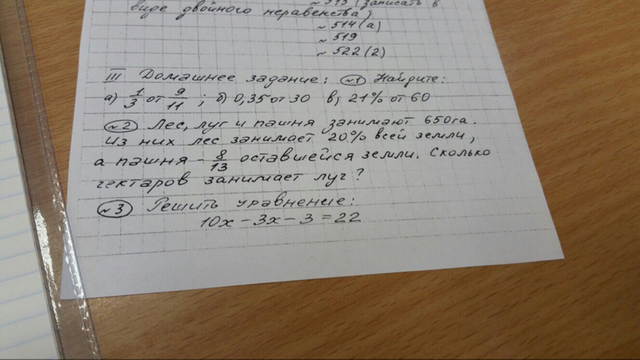 № 515 (записать в
виде двойного неравенства)
№ 514(а)
№ 519
№ 522(2)
III Домашнее задание: №1 Найдите:
а) 1/3 от 9/11 ; б) 0,35 от 30 в) 21% от 60
№2 Лес, луг и пашня занимают 650га.
Из них лес занимает 20% всей земли,
а пашня - 8/13 оставшейся земли. Сколько
гектаров занимает луг?
№3 Решить уравнение:
10x - 3x - 3 = 22